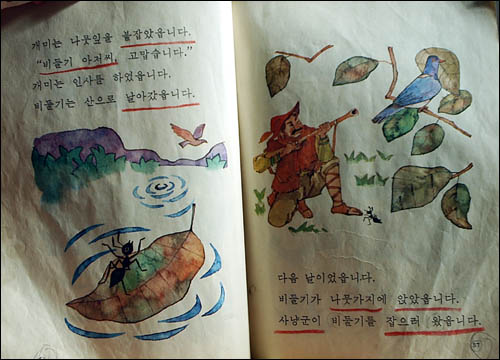 개미는 나뭇잎을 붙잡았읍니다.
"비둘기 아저씨, 고맙습니다."
개미는 인사를 하였읍니다.
비둘기는 산으로 날아갔읍니다.
다음 날이었읍니다.
비둘기가 나뭇가지에 앉았읍니다.
사냥군이 비둘기를 잡으려 왔읍니다.
57